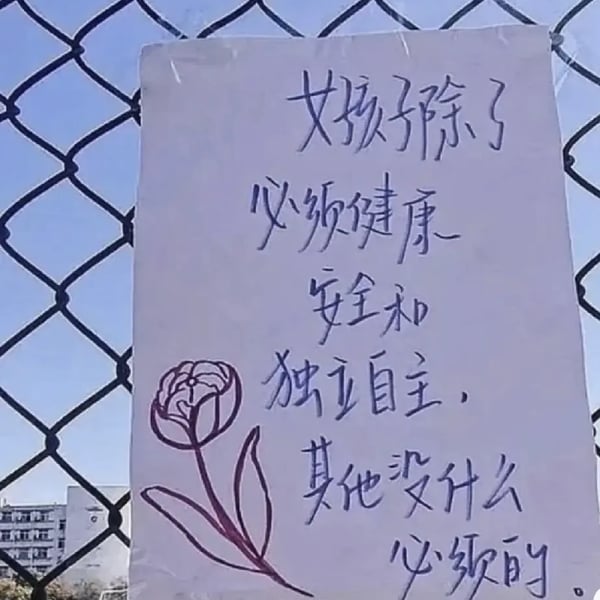 女孩子除了
必须健康
安全和
独立自主，
其他没什么
必须的。